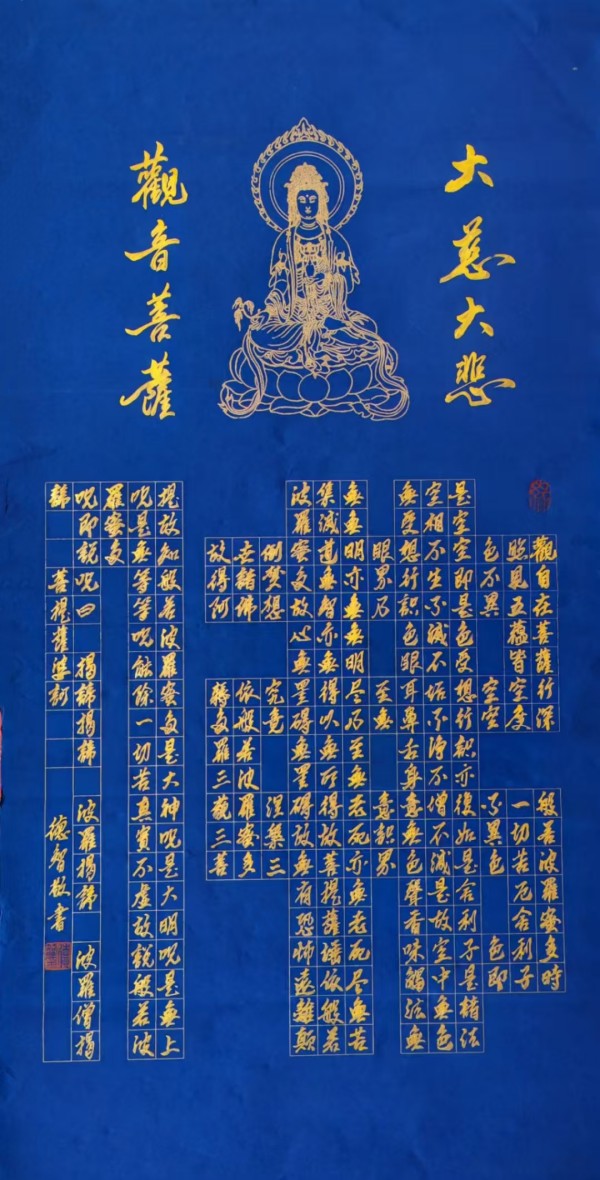 大慈大悲
觀音菩薩
觀自在菩薩行深般若波羅蜜多時
照見五蘊皆空度一切苦厄舍利子
色不異空空不異色色即
是空空即是色受想行識亦復如是舍利子是諸法
空相不生不滅不垢不淨不僧不減是故空中無色
無受想行識色眼耳鼻舌身意無色聲香味觸法無
眼界乃至無意識界
無無明亦無無明尽乃至無老死亦無老死尽無苦
集滅道無智亦無得以無所得故菩提薩埵依般若
波羅蜜多故心無罣碍無罣碍故無有恐怖遠離顛
倒梦想究竟涅槃三
世諸佛依般若波羅蜜多
故得阿耨多羅三藐三菩
提故知般若波羅蜜多是大神呪是大明呪是無上
呪是無等等呪能除一切苦真實不虛故說般若波
羅蜜多
呪即說呪曰 揭諦揭諦 波羅揭諦 波羅僧揭
諦 菩提薩婆訶 德智敬書